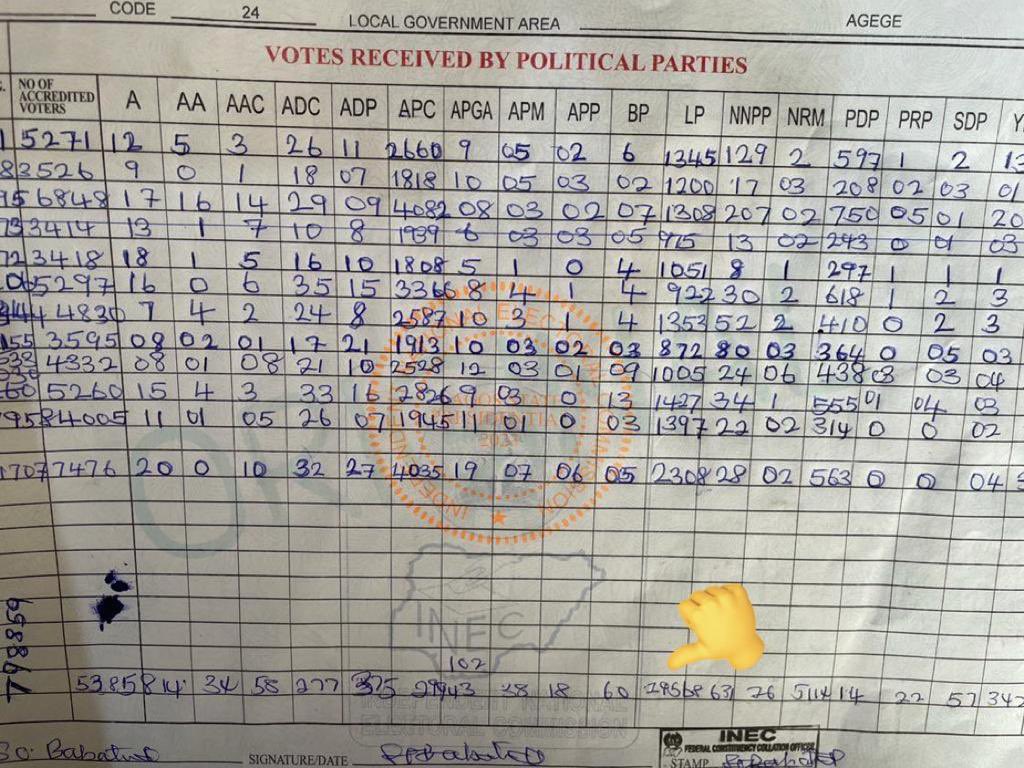 CODE 24 LOCAL GOVERNMENT AREA AGEGE
VOTES RECEIVED BY POLITICAL PARTIES
NO OF ACCREDITED VOTERS A AA AAC ADC ADP APC APGA APM APP BP LP NNPP NRM PDP PRP SDP
5271 12 5 3 26 11 2660 9 05 02 6 1345 129 2 597 1 2 13
3526 9 0 1 18 07 1818 10 05 03 02 1200 17 03 208 02 03 01
6848 17 16 14 29 09 4082 08 03 02 07 1308 207 02 750 05 01 20
3414 13 1 7 10 8 1939 6 03 03 05 915 13 02 243 0 01 03
3418 18 1 5 16 10 1808 5 1 0 4 1051 8 1 297 1 1 1
5297 16 0 6 35 15 3366 8 4 1 4 922 30 2 618 1 2 3
4830 7 4 2 24 8 2587 10 3 1 4 1353 52 2 410 0 2 3
3595 08 02 01 17 21 1913 10 03 02 03 872 80 03 364 0 05 03
4332 08 01 08 21 10 2528 12 03 01 09 1005 24 06 438 03 03 04
5260 15 4 3 33 16 2826 9 03 0 13 1427 34 1 555 01 04 03
4005 11 01 05 26 07 1945 11 01 0 03 1397 22 02 314 0 0 02
7476 20 0 10 32 27 4035 19 07 06 05 2308 28 02 563 0 0 04
INEC
102
798859
34 58 277 29943 18 60 22 57 342
INDEPENDENT NATIONAL
ELECTORAL COMMISSION
Babatund SIGNATURE/DATE
INEC
FEDERAL CONSTITUENCY COLLATION OFFICER
STAMP